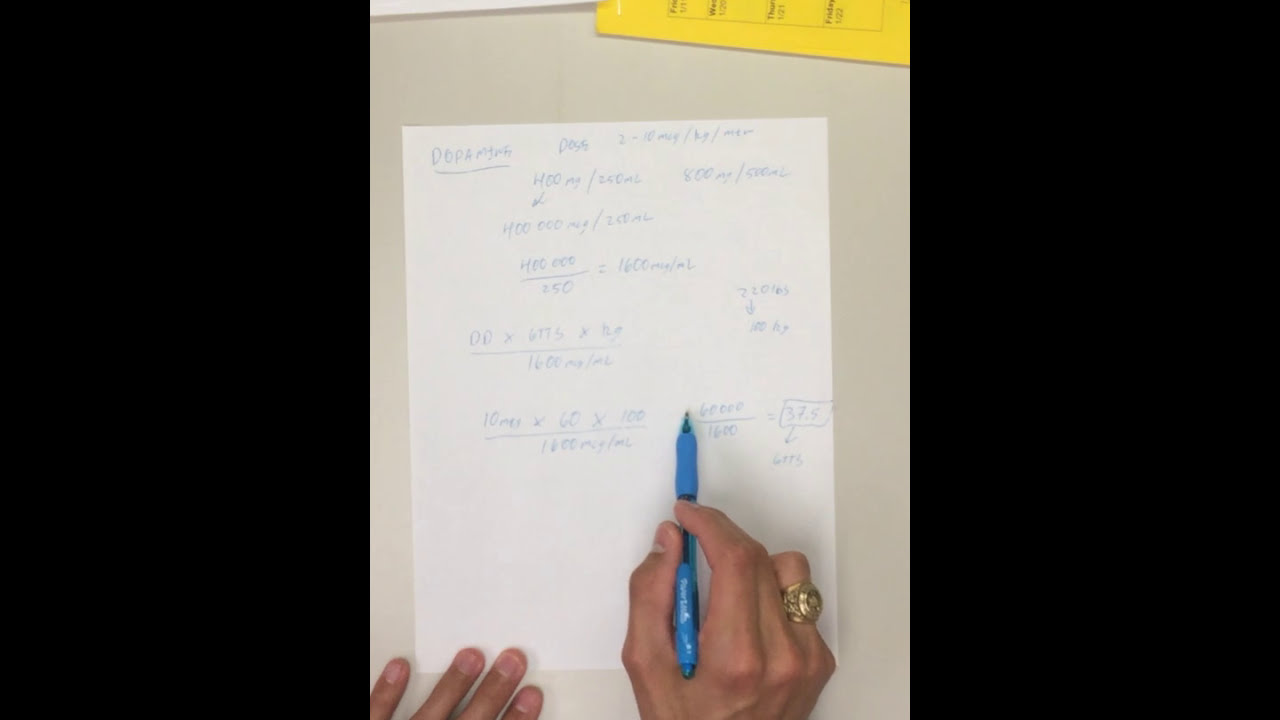 Fri
1/1
Wed
1/20
Thur
1/21
Friday
1/22
DOPAMINE DOSE 2-10 mcg/kg/min
400 mg/250mL 800 mg/500mL
400 000 mcg/250 mL
400 000
250
= 1600 mcg/mL
220 lbs
100 kg
DD x GTTS x kg
1600 mcg/mL
10 mcg x 60 x 100
1600 mcg/mL
60000
1600
= 37.5
GTTS